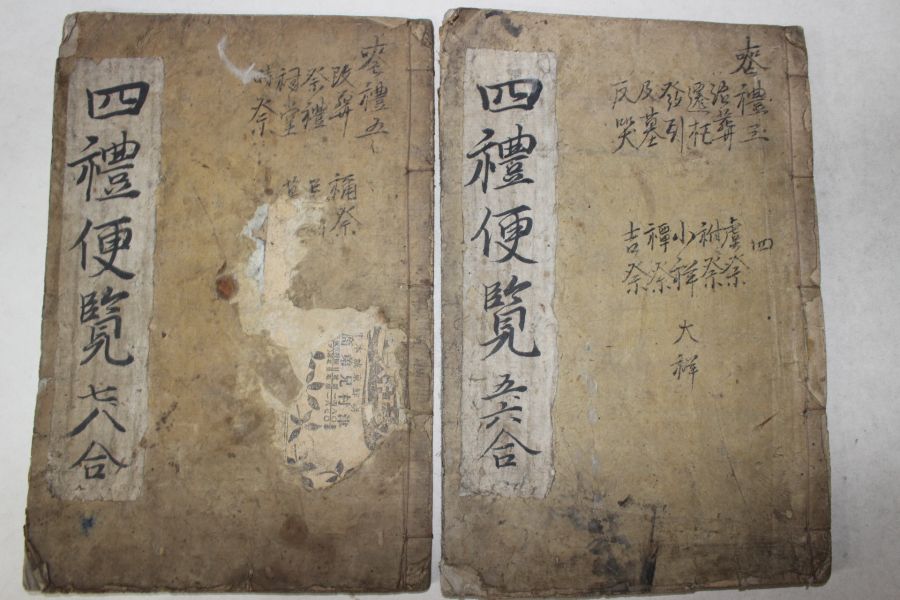 四禮便覽 七八合
喪禮五
改葬
祭禮
祠堂
時祭
禰祭
四禮便覽 五六合
喪禮三
治葬
遷柩
發引
及墓
反哭
四
虞祭
祔祭
小祥
大祥
禫祭
吉祭